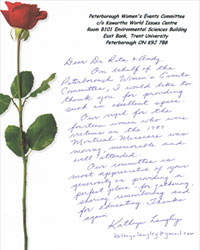 Peterborough Women's Events Committee
c/o Kawartha World Issues Centre
Room B101 Environmental Sciences Building
East Bank, Trent University
Peterborough ON K9J 7B8
Dear Dr Rita & Andy,
On behalf of the
Peterborough Women's Events
Committee, I would like to
thank you for providing
such an excellent space.
Our vigil for the
fourteen women who were
victims in the 1989
Montreal Massacre was
moving, memorable and
well attended.
Our committee is
most appreciative of your
generosity in providing a
perfect place for gathering,
sharing, remembering and
for educating. Thanks
again
Kathryn Langley